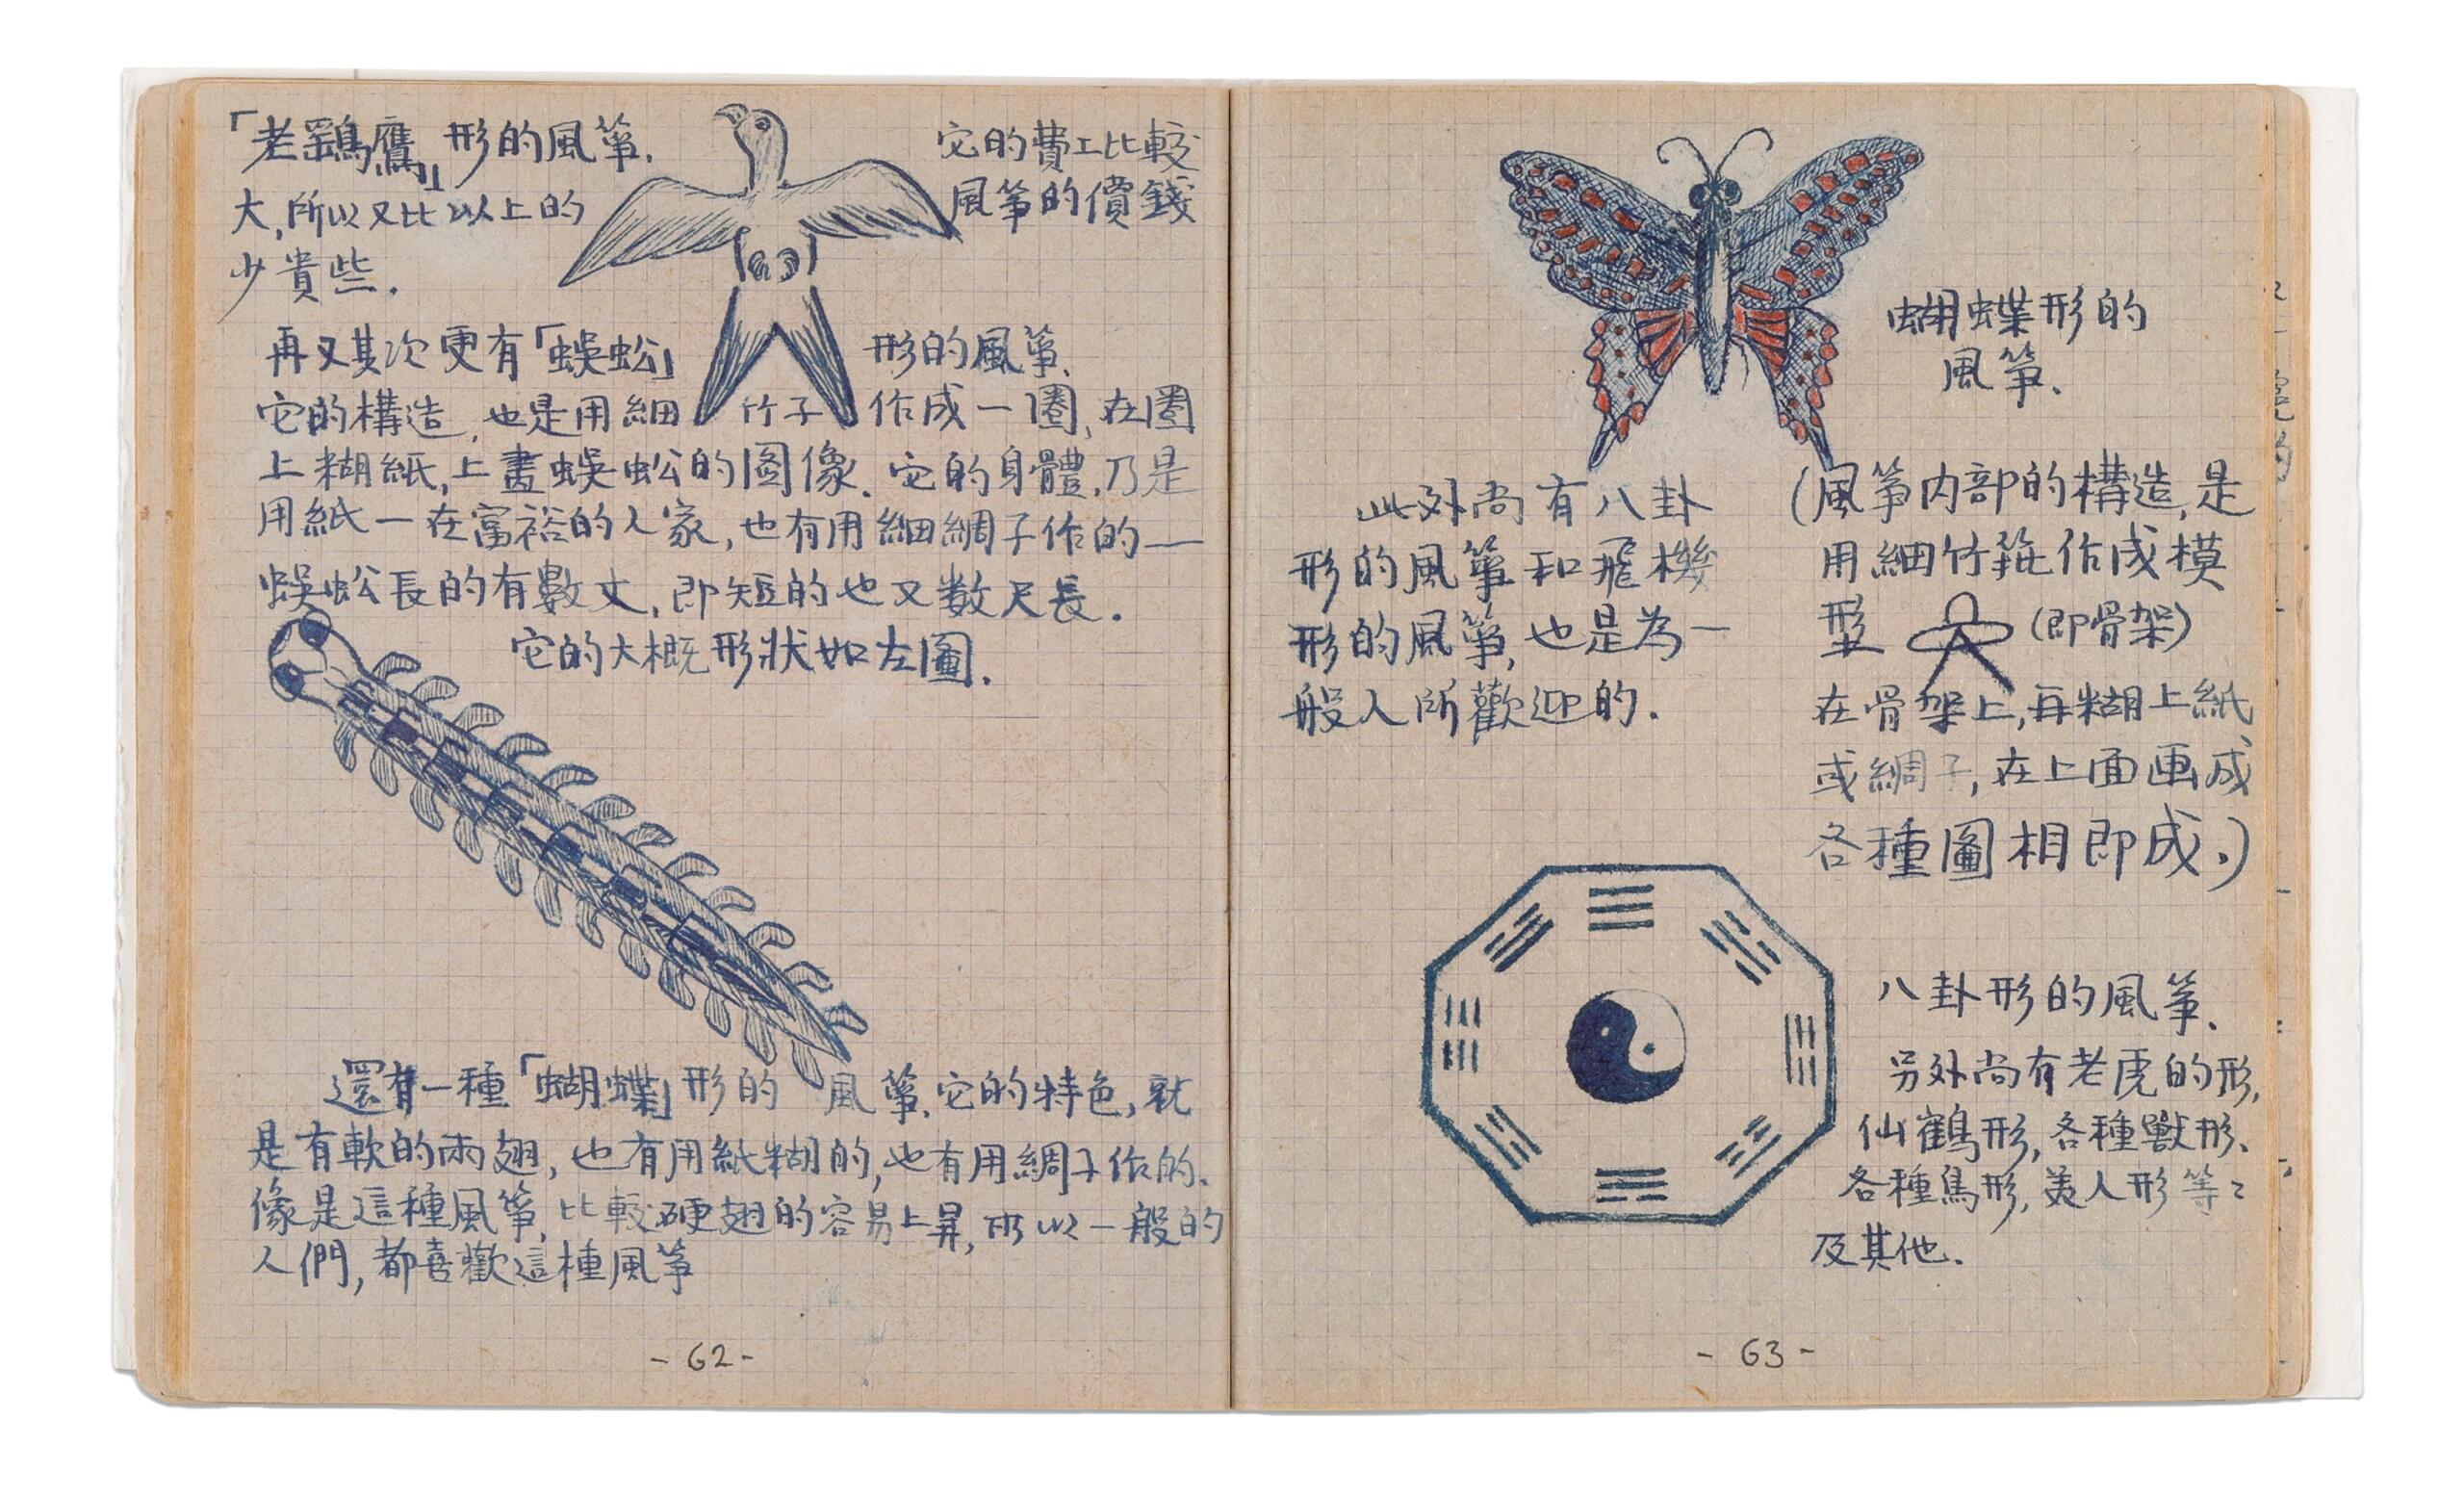 「老鷂鷹」形的風箏. 它的費工比較
大,所以又比以上的 風箏的價錢
少貴些.
再又其次更有「蜈蚣」 形的風箏.
它的構造,也是用細 竹子 作成一圈,在圈
上糊紙,上畫蜈蚣的圖像.它的身體,乃是
用紙一在富裕的人家,也有用細綢子作的—
蜈蚣長的有數丈,即短的也又数尺長.
它的大概形狀如左圖.
還有一種「蝴蝶」形的 風箏.它的特色,就
是有軟的兩翅,也有用紙糊的,也有用綢子作的.
像是這種風箏,比較硬翅的容易上昇,所以一般的
人們,都喜歡這種風箏
- 62 -
蝴蝶形的
風箏.
此外尚有八卦
形的風箏和飛機
形的風箏,也是為一
般人所歡迎的.
(風箏内部的構造,是
用細竹 作成模
型 (即骨架)
在骨架上,再糊上紙
或綢子,在上面画成
各種圖相即成.)
八卦形的風箏.
另外尚有老虎的形,
仙鶴形,各種獸形、
各種鳥形,美人形等々
及其他.
- 63 -